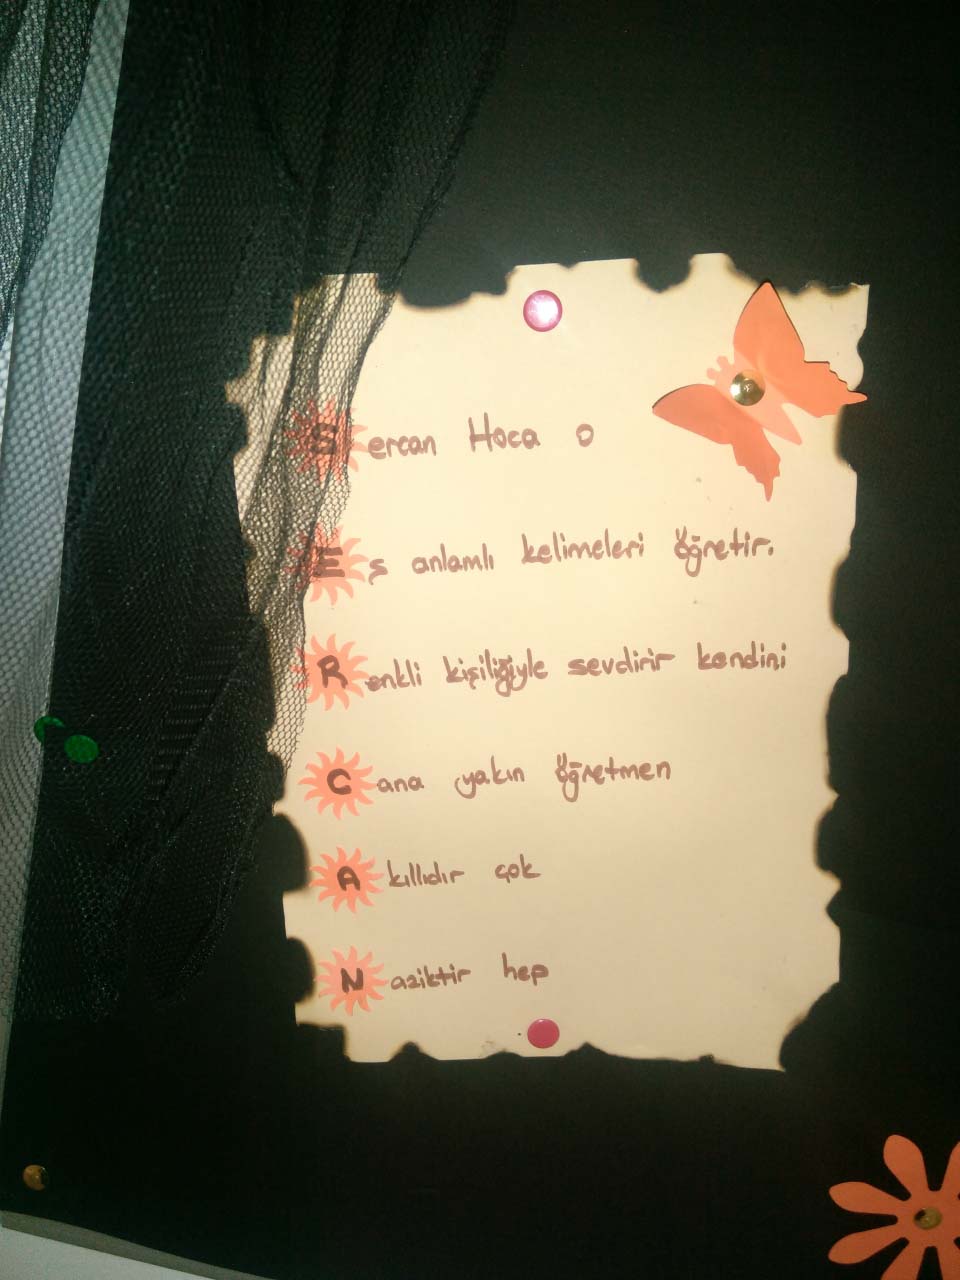 Sercan Hoca o
Eş anlamlı kelimeleri öğretir.
Renkli kişiliğiyle sevdirir kendini
Cana yakın öğretmen
Akıllıdır çok
Naziktir hep